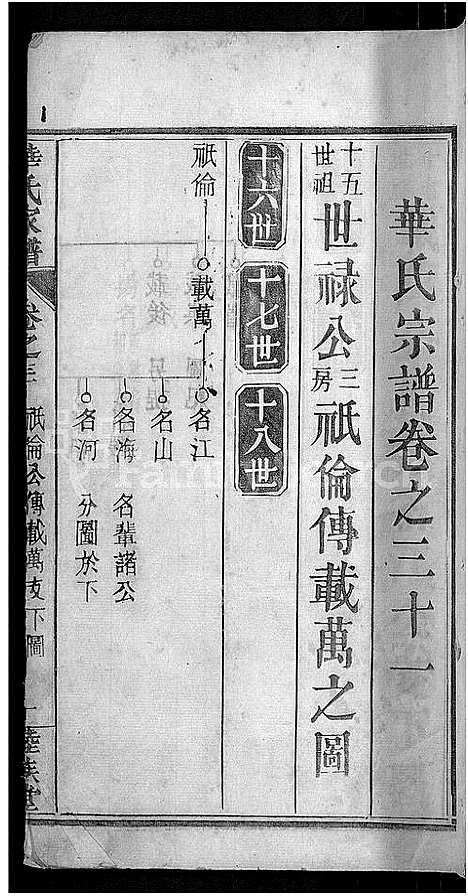 華氏宗譜卷之三十一
十五世祖世祿公三房祇倫傳載萬之圖
十六世 十七世 十八世
祇倫 載萬 名江
名山
名海 名輩諸公
名河 分圖於下
華氏家譜 卷之三 祇倫公傳載萬支下圖 一 陸族堂